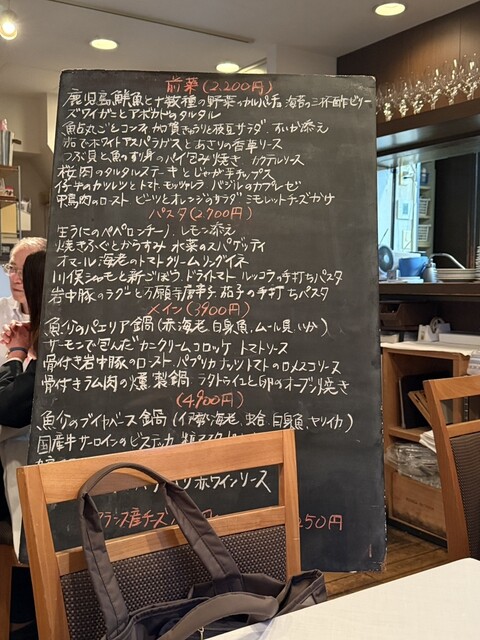 前菜 (2,200円)
鹿児島鮮魚と十数種の野菜のカルパッチョ 海苔の三杯酢ビリー
ズワイガニとアボカドのタルタル
魚介丸ごとコンフィ 加賀きゅうりと枝豆サラダ すいか添え
茹でホワイトアスパラガスとあさりの香草ソース
つぶ貝と魚のすり身のパイ包み焼き ソース
桜肉のタルタルステーキとじゃが芋チップス
仔牛のカツレツとトマト モッツァレラ バジルのカプレーゼ
鴨肉のロースト ビーツとオレンジのサラダ ミモレットチーズがけ
パスタ (2,700円)
生うにのペペロンチーノ レモン添え
焼きふぐとからすみ 水菜のスパゲッティ
オマール海老のトマトクリームリングイネ
川俣シャモと新ごぼう ドライトマト ルッコラの手打ちパスタ
岩中豚のラグと万願寺唐辛子 茄子の手打ちパスタ
メイン (3,900円)
魚介のパエリア鍋 (赤海老 白身魚 ムール貝 いか)
サーモンで包んだカニクリームコロッケ トマトソース
骨付き岩中豚のロースト パプリカナッツトマトのロメスコソース
骨付きラム肉の燻製鍋 ラタトゥイユと卵のオーブン焼き
(4,900円)
魚介のブイヤベース鍋 (伊勢海老 蛤 白身魚 ヤリイカ)
国産牛サーロインのビステッカ
赤ワインソース
フランス産チーズ
50円